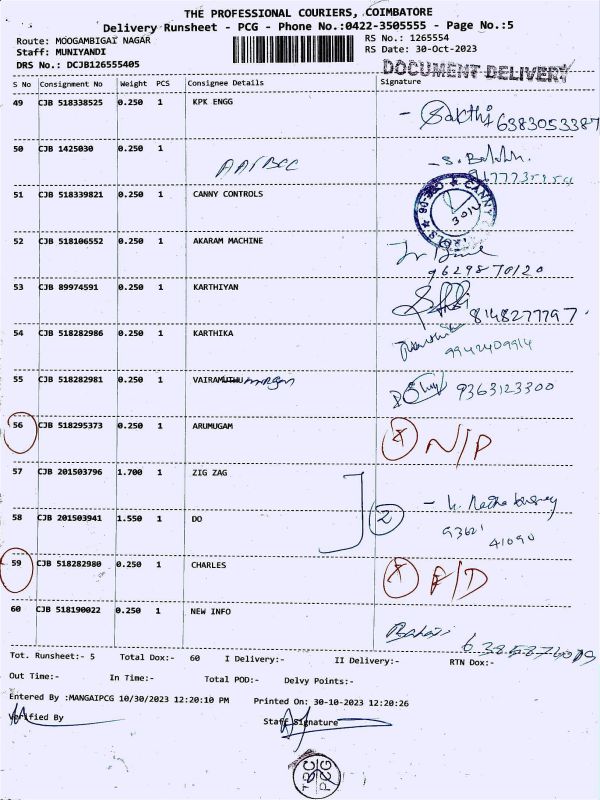 THE PROFESSIONAL COURIERS, COIMBATORE
Delivery Runsheet - PCG - Phone No.:0422-3505555 - Page No.:5
Route: MOOGAMBIGAI NAGAR
RS No.: 1265554
Staff: MUNIYANDI
RS Date: 30-Oct-2023
DRS No.: DCJB126555405
DOCUMENT DELIVERY
S No Consignment No Weight PCS Consignee Details Signature
49 CJB 518338525 0.250 1 KPK ENGG
Sakthi 6383053387
50 CJB 1425030 0.250 1
51 CJB 518339821 0.250 1 CANNY CONTROLS
52 CJB 518106552 0.250 1 AKARAM MACHINE
9629870120
53 CJB 89974591 0.250 1 KARTHIYAN
8148277797
54 CJB 518282986 0.250 1 KARTHIKA
9942409914
55 CJB 518282981 0.250 1 VAIRAMUTHU murgan
9363123300
56 CJB 518295373 0.250 1 ARUMUGAM
X N/P
57 CJB 201503796 1.700 1 ZIG ZAG
58 CJB 201503941 1.550 1 DO
2
93621
41090
59 CJB 518282980 0.250 1 CHARLES
X F/D
60 CJB 518190022 0.250 1 NEW INFO
Tot. Runsheet:- 5 Total Dox:- 60 I Delivery:- II Delivery:- RTN Dox:-
Out Time:- In Time:- Total POD:- Delvy Points:-
Entered By :MANGAIPCG 10/30/2023 12:20:10 PM Printed On: 30-10-2023 12:20:26
Verified By Staff Signature
PCG